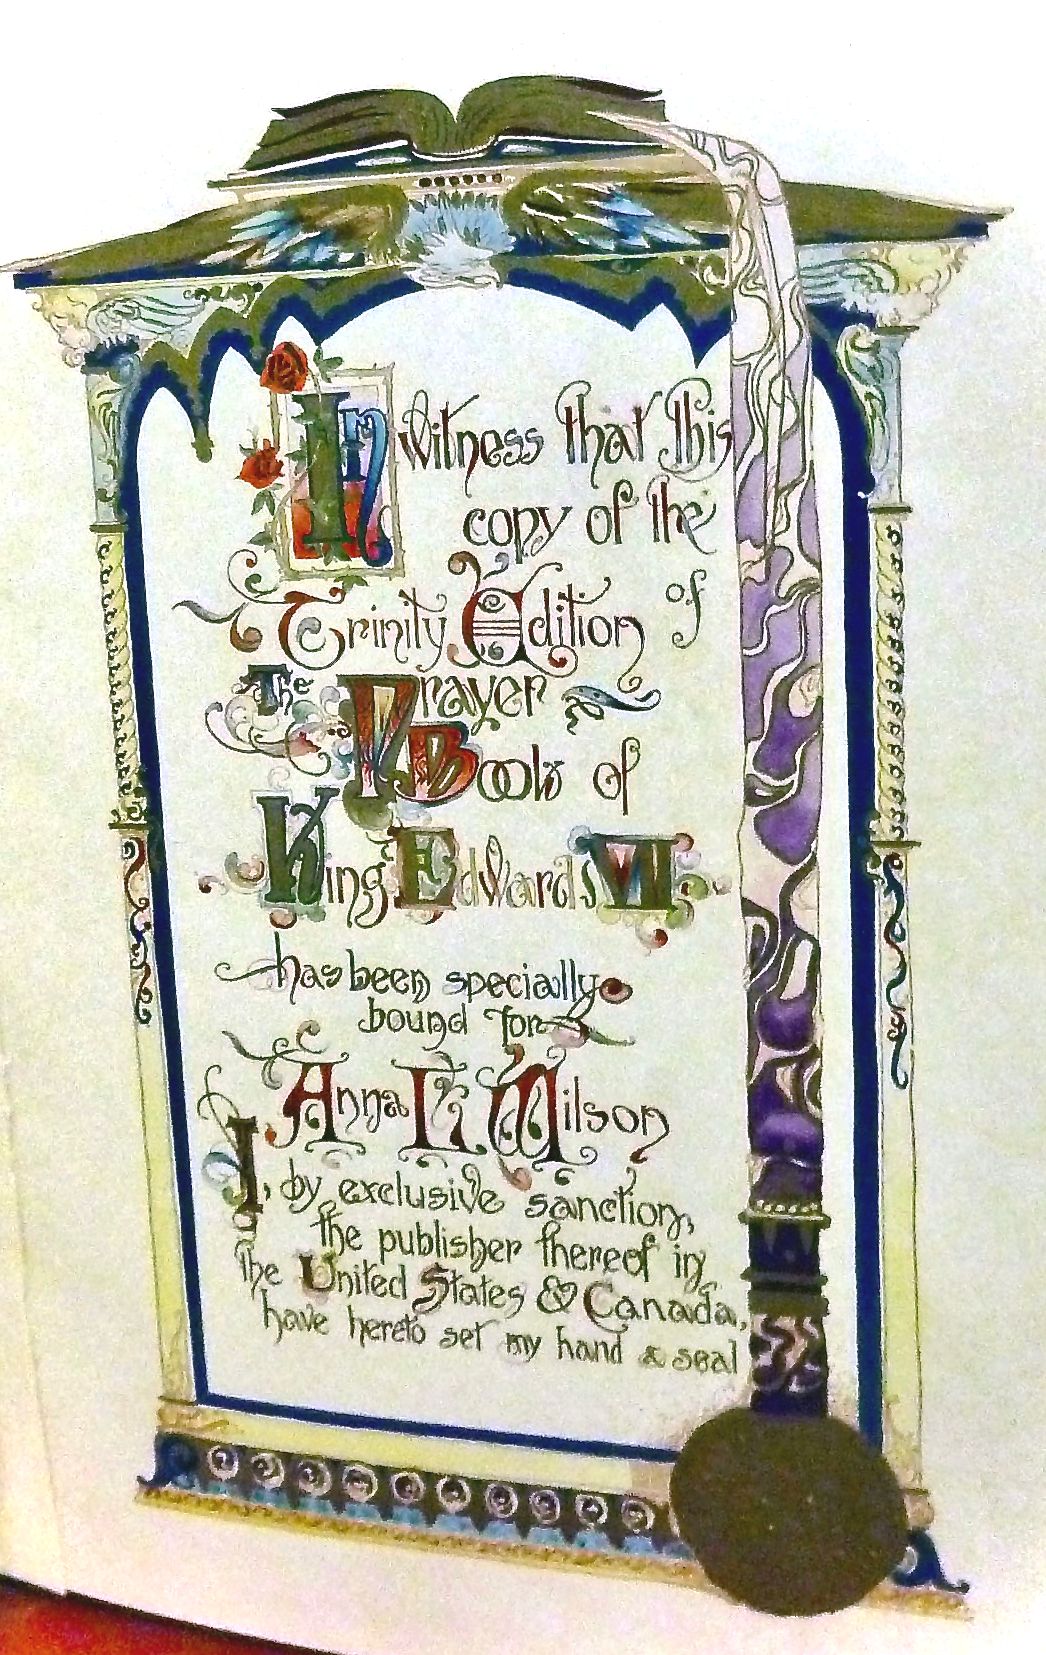 In witness that this
copy of the
Trinity Edition of
The Prayer
Book of
King Edward VII
has been specially
bound for
Anna R Wilson
I, by exclusive sanction,
the publisher thereof in
the United States & Canada,
have hereto set my hand & seal